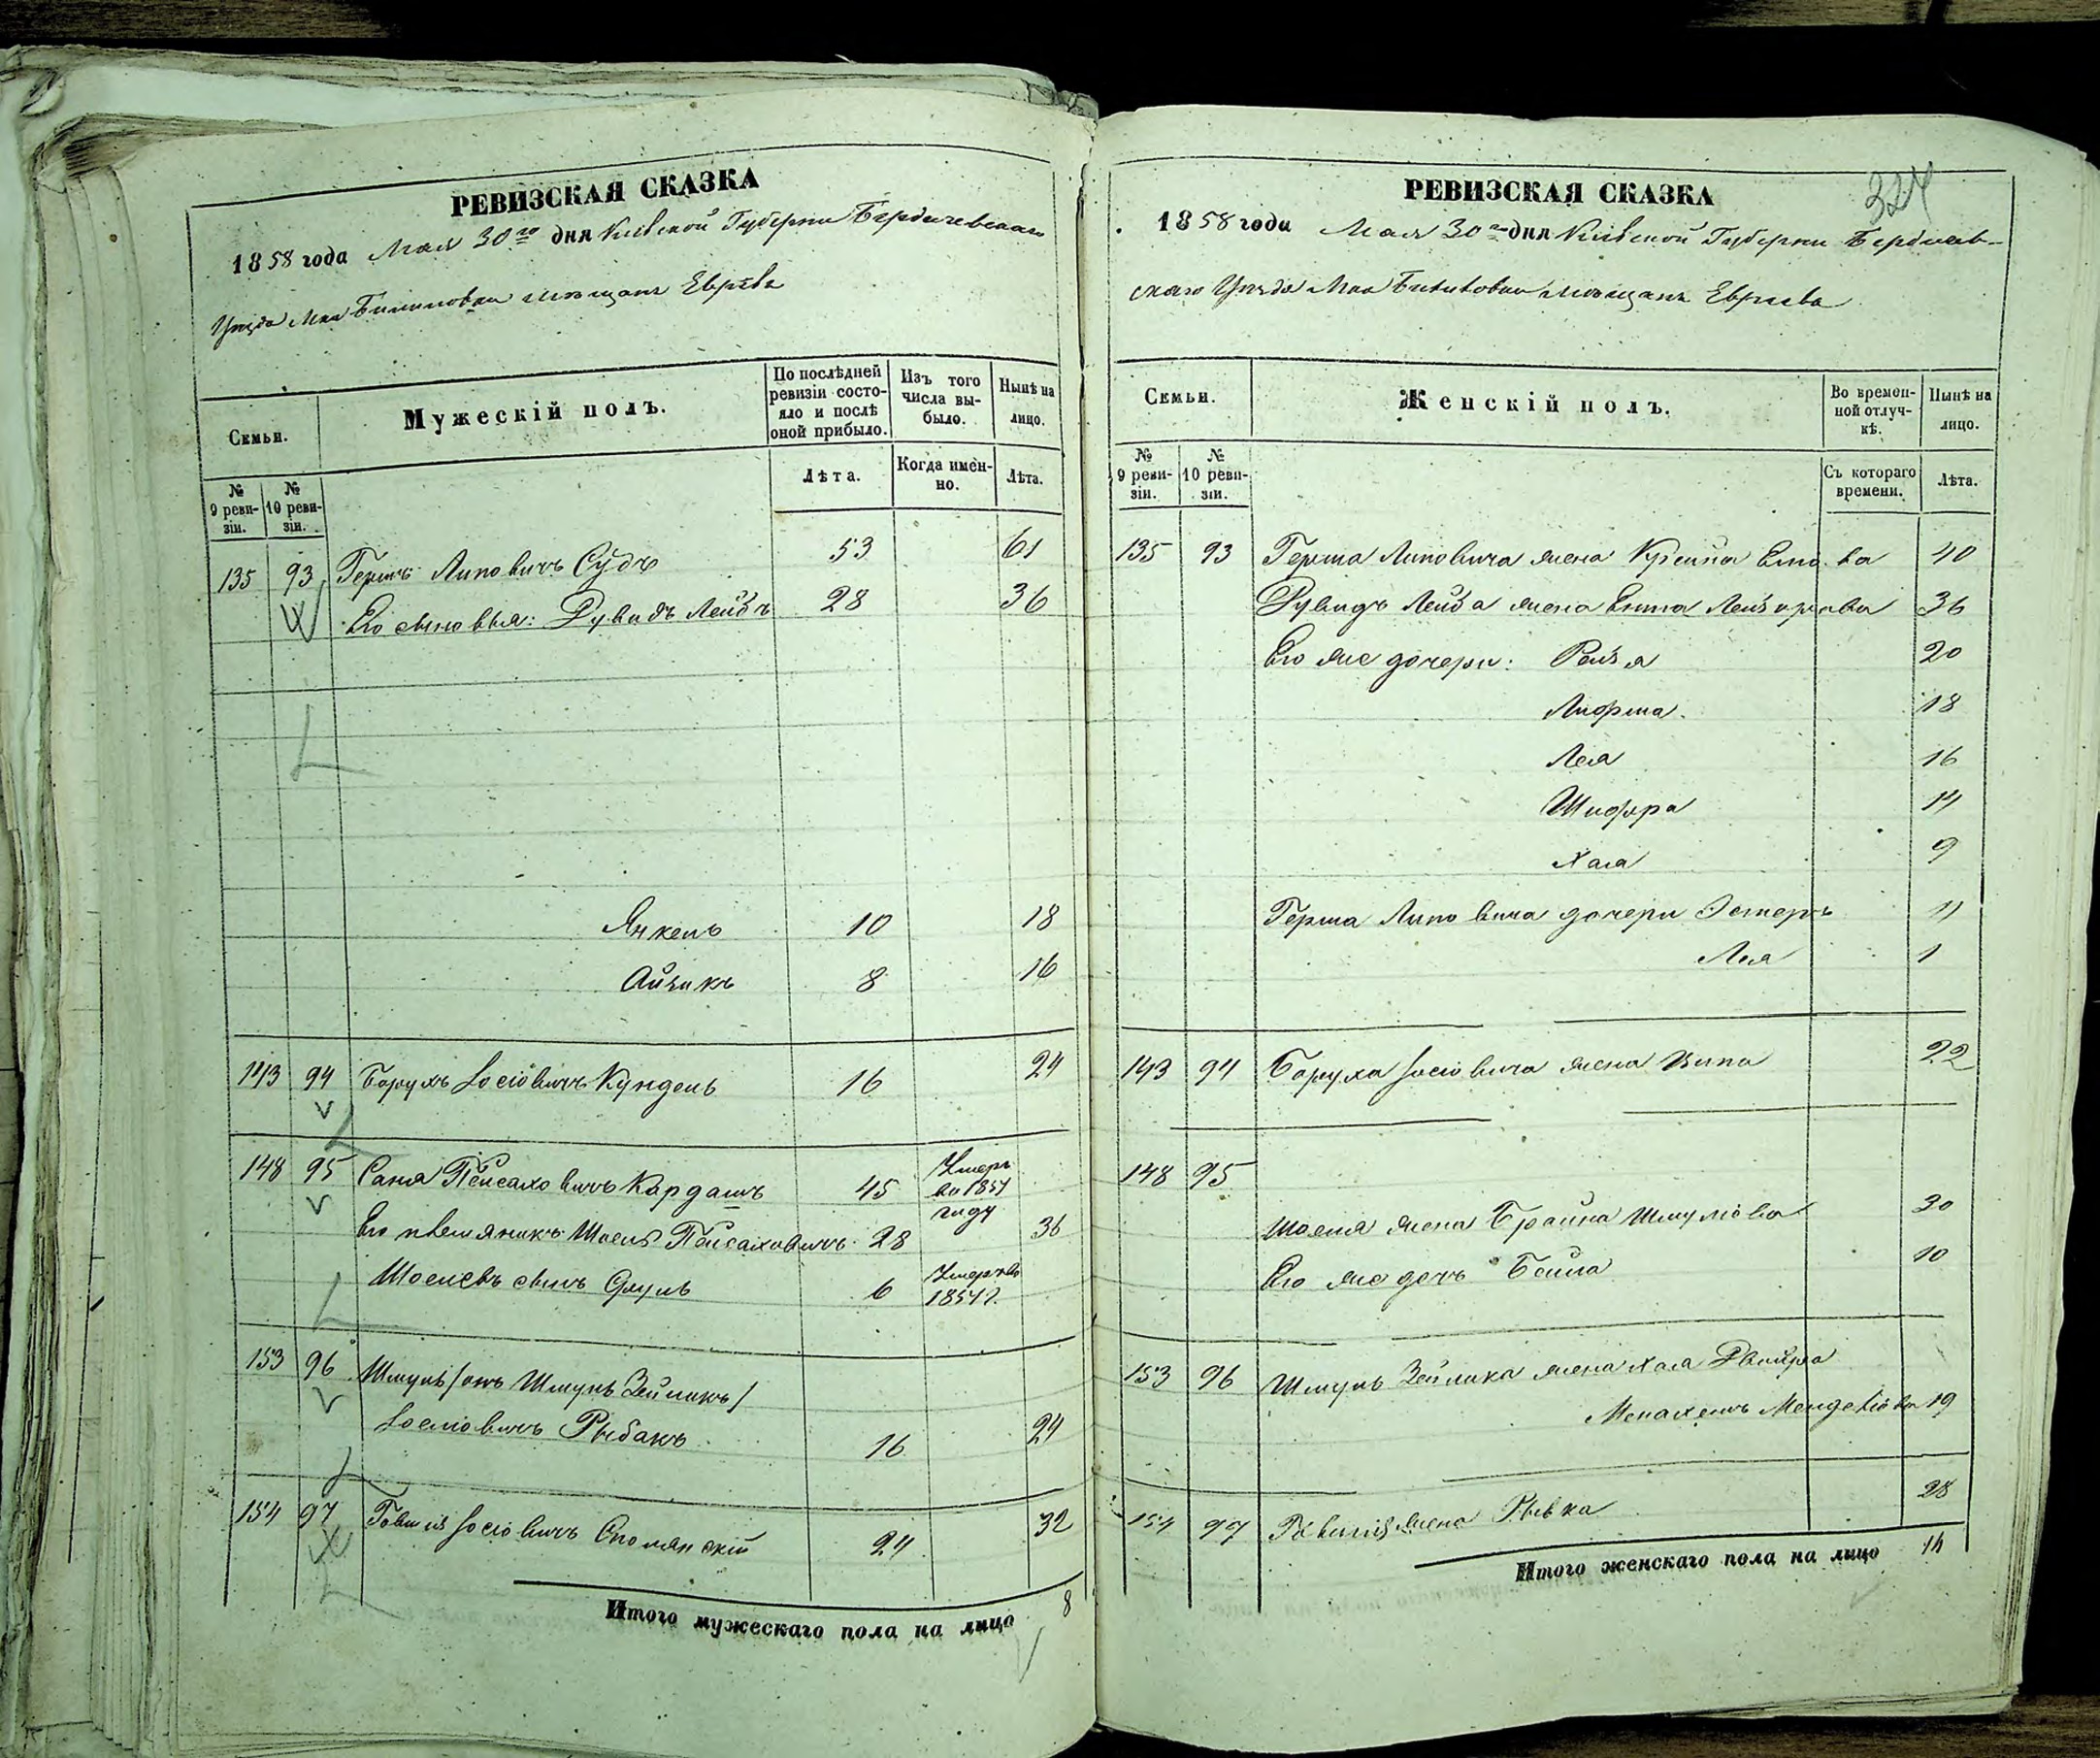 РЕВИЗСКАЯ СКАЗКА
1858 года Мая 30го дня Кіевской Губерніи Бердичевскаго
Уѣзда Мка Билиловки мѣщанъ Евреевъ
Семьи.
Мужескій полъ.
По послѣдней ревизіи состояло и послѣ оной прибыло.
Изъ того числа выбыло.
Нынѣ на лицо.
№ 9 ревизіи.
№ 10 ревизіи.
Лѣта.
Когда именно.
Лѣта.
135 93 Гершъ Липовичъ Судъ 53 61
Его сыновья: Рувидъ Лейбъ 28 36
Янкель 10 18
Айзикъ 8 16
143 94 Борухъ Іосіовичъ Кундель 16 24
148 95 Саня Пейсаховичъ Кардашъ 45 Умеръ во 1857 году
Его племяникъ Шоель Пейсаховичъ 28 36
Шоелевъ сынъ Сруль 6 Умеръ во 1854 г.
153 96 Шмуль /онъ Шмуль Зейликъ/
Іосіовичъ Рыбакъ 16 24
154 97 Говшія Іосіовичъ Сполянскій 24 32
Итого мужескаго пола на лицо 8
324
РЕВИЗСКАЯ СКАЗКА
1858 года Мая 30го дня Кіевской Губерніи Бердичев-
скаго Уѣзда Мка Билиловки мѣщанъ Евреевъ
Семьи.
Женскій полъ.
Во временной отлучкѣ.
Нынѣ на лицо.
№ 9 ревизіи.
№ 10 ревизіи.
Съ котораго времени.
Лѣта.
135 93 Герша Липовича жена Крейна 40
Рувидъ Лейба жена Ента Лейзорова 36
Его же дочери: Рейзя 20
Лифша 18
Лея 16
Шифра 14
Хая 9
Герша Липовича дочери Эстеръ 11
Лея 1
143 94 Боруха Іосіовича жена Ципа 22
148 95
Шоеля жена Брайна Шмулiова 30
Его же дочь Бейла 10
153 96 Шмуль Зейлика жена Хая Двойра
Менахемъ Менделіова 19
154 97 Говшія жена Рывка 28
Итого женскаго пола на лицо 14